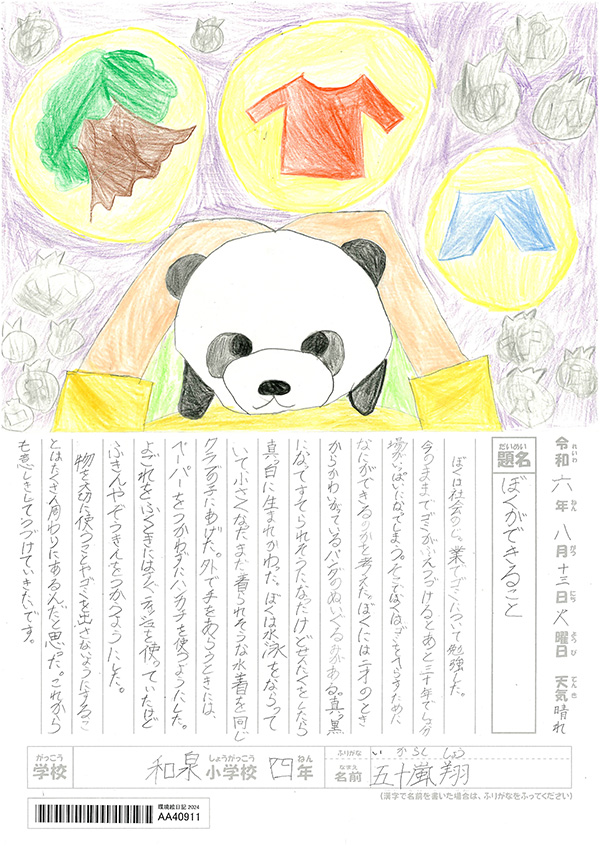 令和六年八月十三日火曜日 天気晴れ
れいわ ねん がつ にち ようび てんき
だいめい
題名 ぼくができること
ぼくは社会の授業でゴミについて勉強した。
今のままでゴミがふえつづけるとあと三十年でしょ分
場がいっぱいになってしまう。そこでぼくはゴミをへらすために
なにができるのかを考えた。ぼくには二才のとき
からかわいがっているパンダのぬいぐるみがある。真っ黒
になってすてられそうになったけどせんたくをしたら
真っ白に生まれかわった。ぼくは水泳をならって
いて小さくなったまだ着られそうな水着を同じ
クラブの子にあげた。外で手をあらうときには、
ペーパーをつかわずにハンカチを使うようにした。
よごれをふくときにはティッシュを使っていたけど
ふきんやぞうきんをつかうようにした。
物を大切に使うことやゴミを出さないようにするこ
とはたくさん周わりにあるんだと思った。これから
も意しきしてつづけていきたいです。
がっこう しょうがっこう ねん
学校 和泉小学校 四年
ふりがな いがらし しょう
なまえ
名前 五十嵐 翔
(漢字で名前を書いた場合は、ふりがなをふってください)
環境絵日記 2024
AA40911